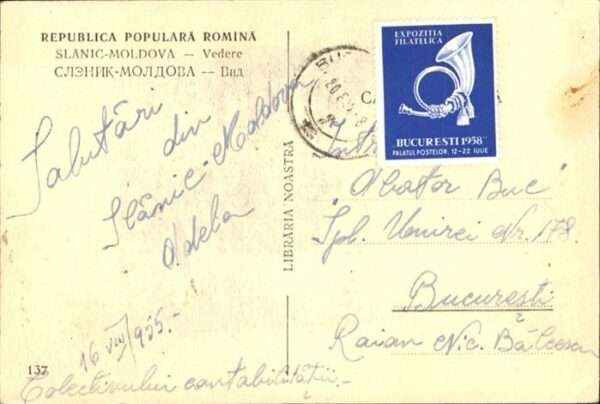 REPUBLICA POPULARĂ ROMÎNĂ
SLANIC-MOLDOVA — Vedere
СЛЭНИК-МОЛДОВА — Вид
Salutări
din
Slănic-Moldova
Adela
16 VIII/955.-
137
Colectivului contabilității.-
LIBRĂRIA NOASTRĂ
EXPOZIȚIA
FILATELICA
"BUCUREȘTI 1958"
PALATUL POSTELOR, 12-22 IULIE
CA
Într
"Abator Buc"
Spl. Unirei Nr. 178.
București
Raian Nic. Bălcescu